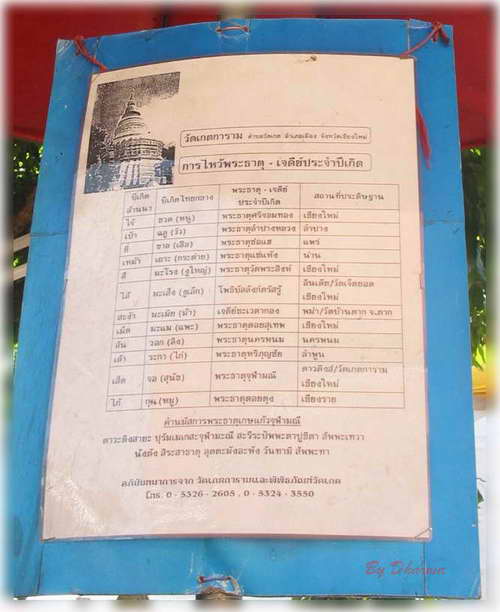 วัดเกตการาม ตำบลวัดเกต อำเภอเมือง จังหวัดเชียงใหม่
การไหว้พระธาตุ - เจดีย์ประจำปีเกิด
ปีเกิดล้านนา ปีเกิดไทยกลาง พระธาตุ - เจดีย์ประจำปีเกิด สถานที่ประดิษฐาน
ไจ้ ชวด (หนู) พระธาตุศรีจอมทอง เชียงใหม่
เป้า ฉลู (วัว) พระธาตุลำปางหลวง ลำปาง
ยี ขาล (เสือ) พระธาตุช่อแฮ แพร่
เหม้า เถาะ (กระต่าย) พระธาตุแช่แห้ง น่าน
สี มะโรง (งูใหญ่) พระธาตุวัดพระสิงห์ เชียงใหม่
ไส้ มะเส็ง (งูเล็ก) โพธิบัลลังก์ตรัสรู้ อินเดีย/วัดเจ็ดยอด เชียงใหม่
สะง้า มะเมีย (ม้า) เจดีย์ชะเวดากอง พม่า/วัดบ้านตาก จ.ตาก
เม็ด มะแม (แพะ) พระธาตุดอยสุเทพ เชียงใหม่
สัน วอก (ลิง) พระธาตุนครพนม นครพนม
เล้า ระกา (ไก่) พระธาตุหริภุญชัย ลำพูน
เส็ด จอ (สุนัข) พระธาตุจุฬามณี ดาวดึงส์/วัดเกตการาม เชียงใหม่
ไก๊ กุน (หมู) พระธาตุดอยตุง เชียงราย
คำนมัสการพระธาตุเกษแก้วจุฬามณี
ตาวะติงสายะ ปุรัมเมเกสะจุฬามณี สะรีระปัพพะตาปูชิตา สัพพะเทวา
นังตัง สิระสาธาตุ อุตตะมังอะหัง วันทามิ สัพพะทา
อภินันทนาการจาก วัดเกตการามและพิพิธภัณฑ์วัดเกต
โทร. 0 - 5326 - 2605 , 0 - 5324 - 3550
By Dharma